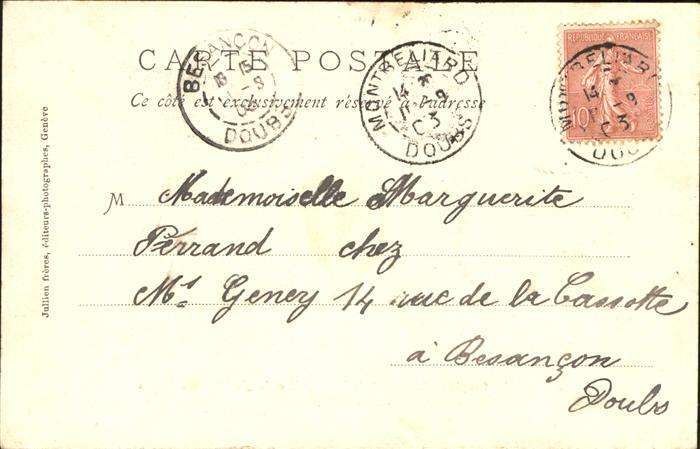 CARTE POSTALE
Ce côté est exclusivement réservé à l'adresse
BESANÇON
DOUBS
MONTBELIARD
DOUBS
REPUBLIQUE FRANÇAISE
10
MONTBELIARD
DOUBS
M Mademoiselle Marguerite
Perrand chez
Mr Geney 14 rue de la Cassotte
à Besançon
Doubs
Jullien frères, éditeurs-photographes, Genève